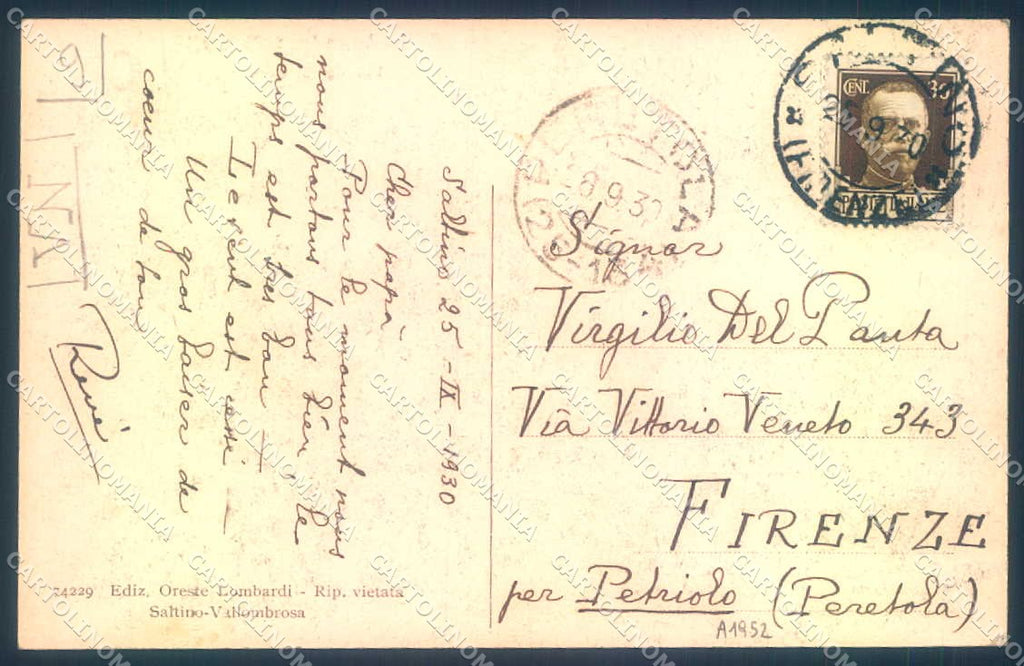 Saltino 25-IX-1930
Cher papà
Pour le moment nous
nous portons tous bien, le
temps est très bon —
Le vent est cessé —
Un gros baiser de
coeur de ton
René
74229 Ediz. Oreste Lombardi - Rip. vietata
Saltino-Vallombrosa
CENT. 30
9 30
(FIRENZE)
9.30
Signor
Virgilio Del Panta
Via Vittorio Veneto 343
FIRENZE
per Petriolo (Peretola)
A1952
CARTOLINOMANIA